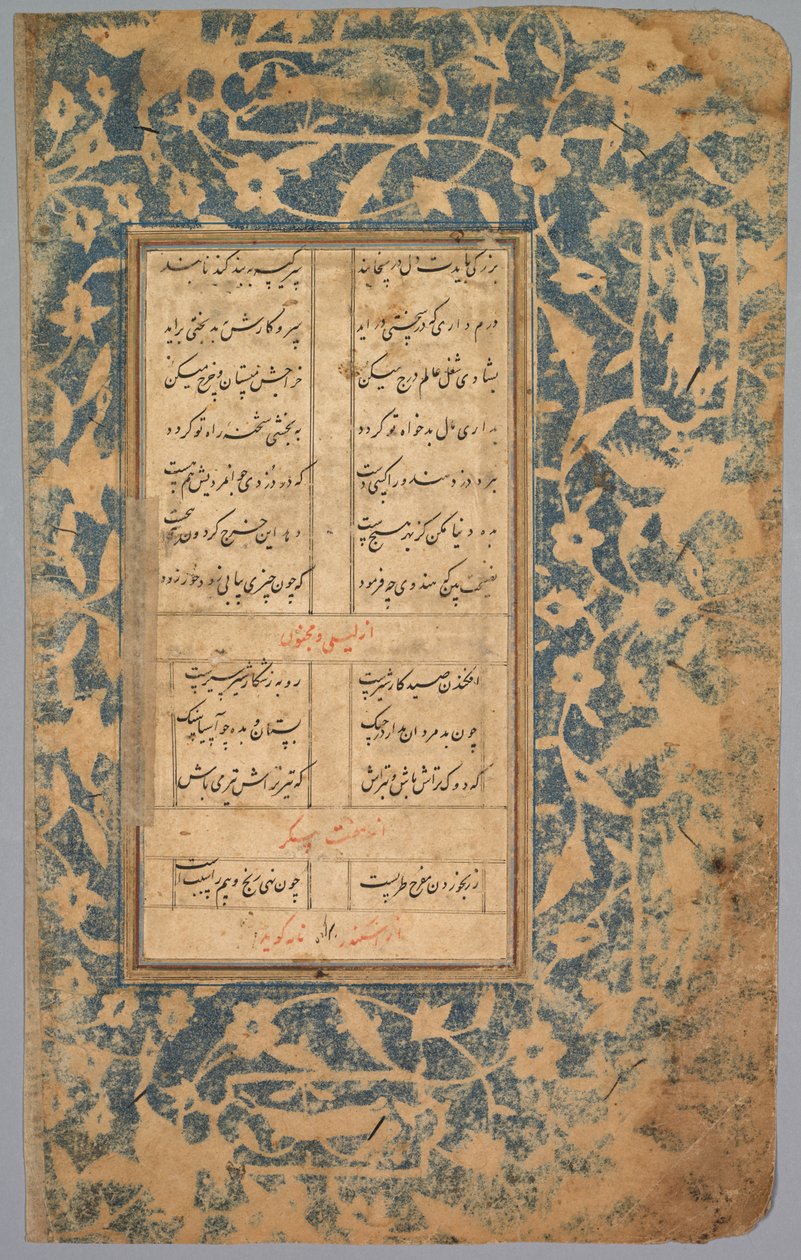 بزرگی بایدت دل در سخا بند سر کیسه به بند گندنا بند
درم داری که در سختی در آید سر و کارش به بدبختی برآید
بشادی شغل عالم درج میکن خراجش میستان و خرج میکن
بداری مال بدخواه تو گردد به بخشی شحنه راه تو گردد
برد دزد هندو را کسی دست که در دزدی جوانمردیش هم هست
بده دنیا مکن کز بهر هیچت دهد این چرخ گردون
نصیحت بین که هندوی چه فرمود که چون چیزی بیابی زود خور زود
از لیلی و مجنون
افکندن صید کار شیرست روبه ز شکار شیر سیرست
چون بدمردان بدار در چنگ بستان و بده چو آسیا سنگ
که دوک تراش باش و تیر تراش که تیر تراش تیر می باش
از هفت پیکر
زر بخوردن مفرح طربست چون نهی رنج و بیم را سببست
از اسکندر نامه گوید